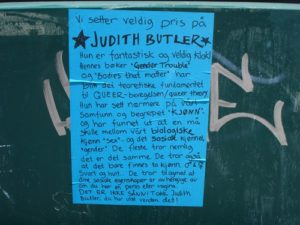 Vi setter veldig pris på
★JUDITH BUTLER★
Hun er fantastisk og veldig klok!
Hennes bøker "Gender Trouble"
og "Bodies that matter" har
blitt det teoretiske fundamentet
til QUEER-bevegelsen/queer theory.
Hun har sett nærmere på vårt
Samfunn og begrepet "KJØNN",
og har funnet ut at en må
skille mellom vårt biologiske
kjønn "sex" - og det sosiale kjønnet,
"gender". De fleste tror nemlig
det er det samme. De tror også
at det bare finnes to kjønn
Svart og hvitt. De tror til og med at
dine sosiale egenskaper er avhengige av
om du har en penis eller vagina.
Det ER IKKE SÅNN! TAKK Judith
Butler, du har vist verden det!